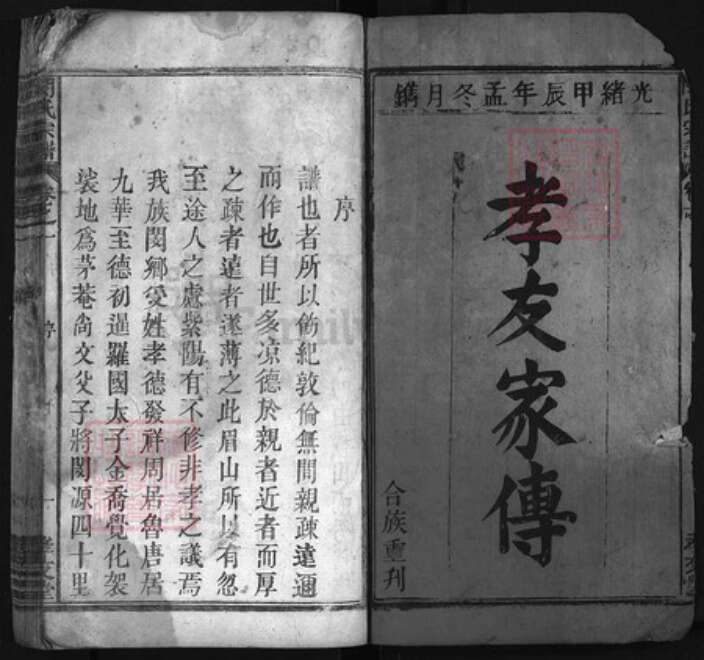 光緒甲辰年孟冬月鐫
孝友家傳
合族重刊
序
譜也者所以飭紀敦倫無間親疎遠邇
而作也自世多凉德於親者近者而厚
之疎者遠者遂薄之此眉山所以有忽
至途人之慮紫陽有不修非孝之議焉
我族閔鄉受姓孝德發祥周居魯唐居
九華至德初暹羅國太子金喬覺化袈
裟地為茅菴尚文父子將閔源四十里
序
孝友堂